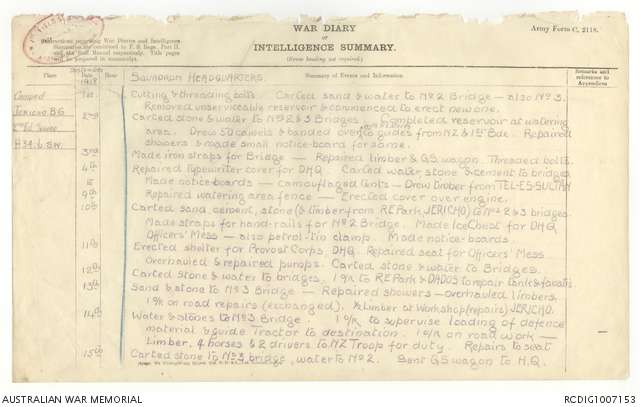 WAR DIARY
or
INTELLIGENCE SUMMARY.
(Erase heading not required).
Army Form C. 2118.
Instructions regarding War Diaries and Intelligence
Summaries are contained in F. S. Regs., Part II.
and the Staff Manual respectively. Title pages
will be prepared in manuscript.
Place
Date
Hour
Summary of Events and Information
Remarks and references to Appendices
1918
SQUADRON HEADQUARTERS.
Camped
Jericho
1st Cutting & threading bolts. Carted sand & water to No 2 Bridge — also No 3.
Removed unserviceable reservoir & commenced to erect new one.
2nd Carted stone & water to Nos 2 & 3 Bridges. Completed reservoir at watering
area. Drew 50 camels & handed over to guides from NZ & 1st Bde. Repaired
showers & made small notice-board for same.
3rd Made iron straps for Bridge — Repaired limber & G.S. wagon. Threaded bolts.
4th Repaired typewriter cover for DHQ. Carted water stone & cement to bridges
to Made notice-boards — camouflaged tents — Drew timber from TEL-ES-SULTAN
9th Repaired watering area fence — Erected cover over engine.
10th Carted sand, cement, stone (& timber from RE Park JERICHO) to Nos 2 & 3 bridges.
Made straps for hand-rails for No 2 Bridge. Made Ice Chest for DHQ
Officers' Mess — also petrol-tin clamp. Made notice-boards.
11th Erected shelter for Provost Corps, DHQ. Repaired seat for Officers' Mess
Overhauled & repaired pumps. Carted stone & water to Bridges.
12th Carted stone & water to bridges. 1 O/R to RE Park & DADOS to repair tanks &
13th Sand & stone to No 3 Bridge — Repaired showers — overhauled limbers,
1 O/R on road repairs (exchanged). ½ Limber at Workshop (repairs) JERICHO.
14th Water & stones to No 3 Bridge. 1 O/R to supervise loading of defence
material & guide Tractor to destination. 1 O/R on road work —
Limber, 4 horses & 2 drivers to NZ Troop for duty. Repairs to seat
15th Carted stone to No 3 bridge, water to No 2. Sent GS wagon to H.Q.
AUSTRALIAN WAR MEMORIAL
RCDIG1007153